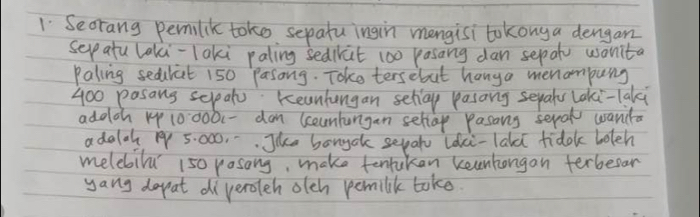 1. Seorang pemilik toko sepatu ingin mengisi tokonya dengan
sepatu laki-laki paling sedikit 100 pasang dan sepatu wanita
paling sedikit 150 pasang. Toko tersebut hanya menampung
400 pasang sepatu. Keuntungan setiap pasang sepatu laki-laki
adalah Rp 10.000,- dan keuntungan setiap pasang sepatu wanita
adalah Rp 5.000,-. Jika banyak sepatu laki-laki tidak boleh
melebihi 150 pasang, maka tentukan keuntongan terbesar
yang dapat di peroleh oleh pemilik toko.